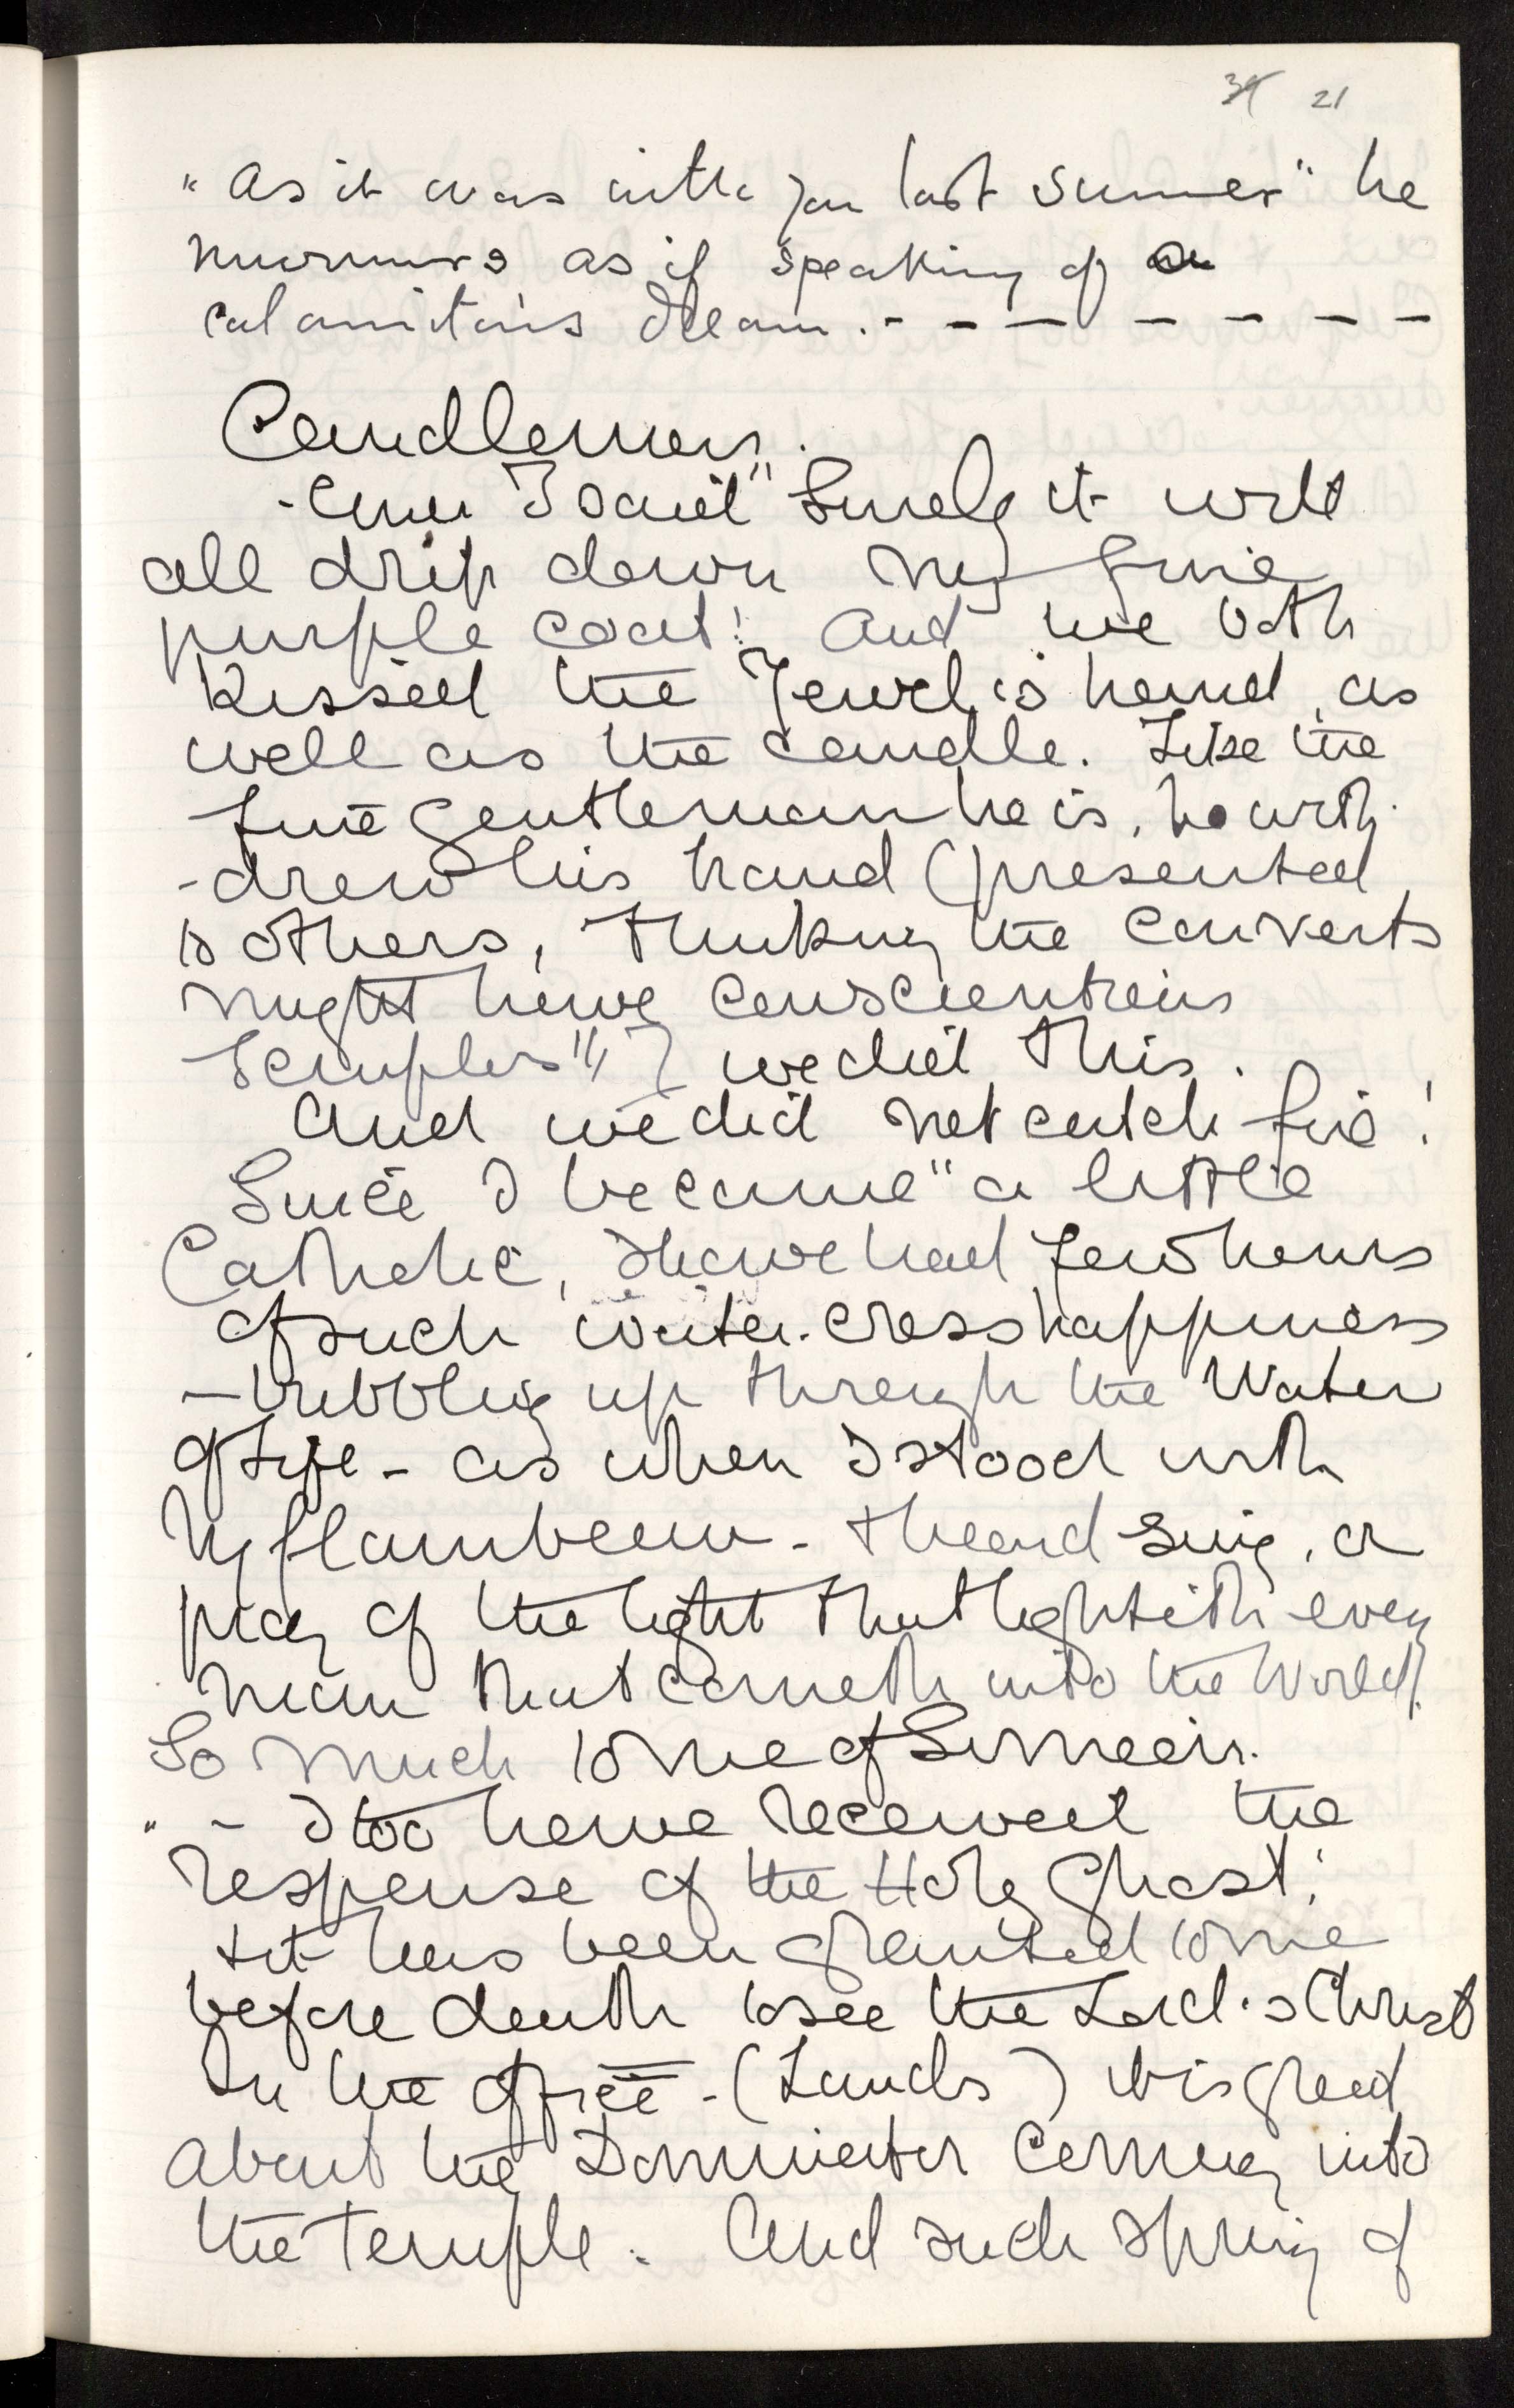 34 21
"As it was with you last summer" he
murmurs as if speaking of a
calamitous dream. - - - - - - -
Candlemas.
- I said "Surely it will
all drip down my fine
purple coat! And we both
kissed the Jewel's hand, as
well as the candle. Like the
fine gentleman he is, he with-
-drew his hand (presented
to others, thinking the converts
might have conscientious
scruples") we did this.
And we did not catch fire!
Since I became "a little
Catholic, I have had few hours
of such water-cress happiness
- bubbling up through the Water
of Life - as when I stood with
My flambeau - & heard sung, or
pray of the light that lighteth every
man that cometh into the World.
So much to me of Simeon.
" - I too have received the
response of the Holy Ghost;
& it has been granted to me
before death to see the Lord's Christ
In the office - (Lauds) it is great
about the Dominator coming into
the temple. And such spring of